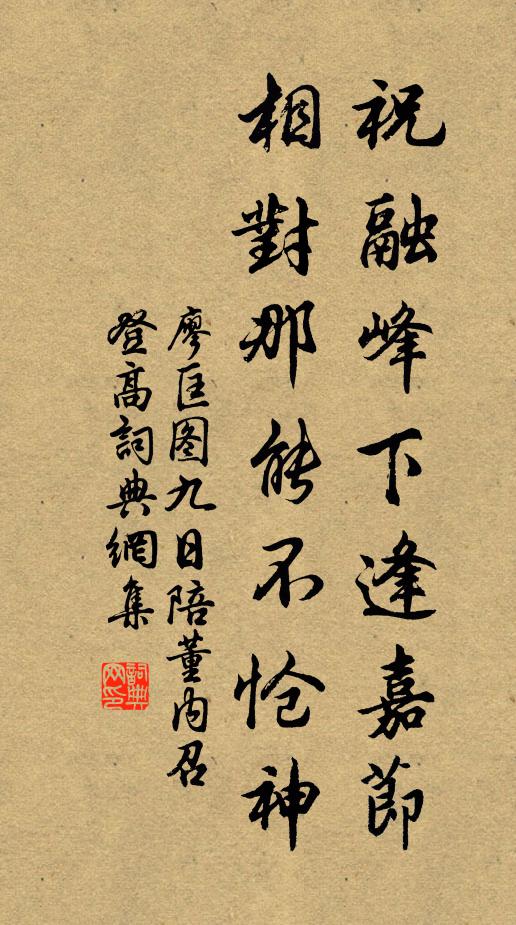 祝融峰下逢嘉節
相對那能不愴神
廖匡图九日陪董内召
登高詞典網集
詞典網印